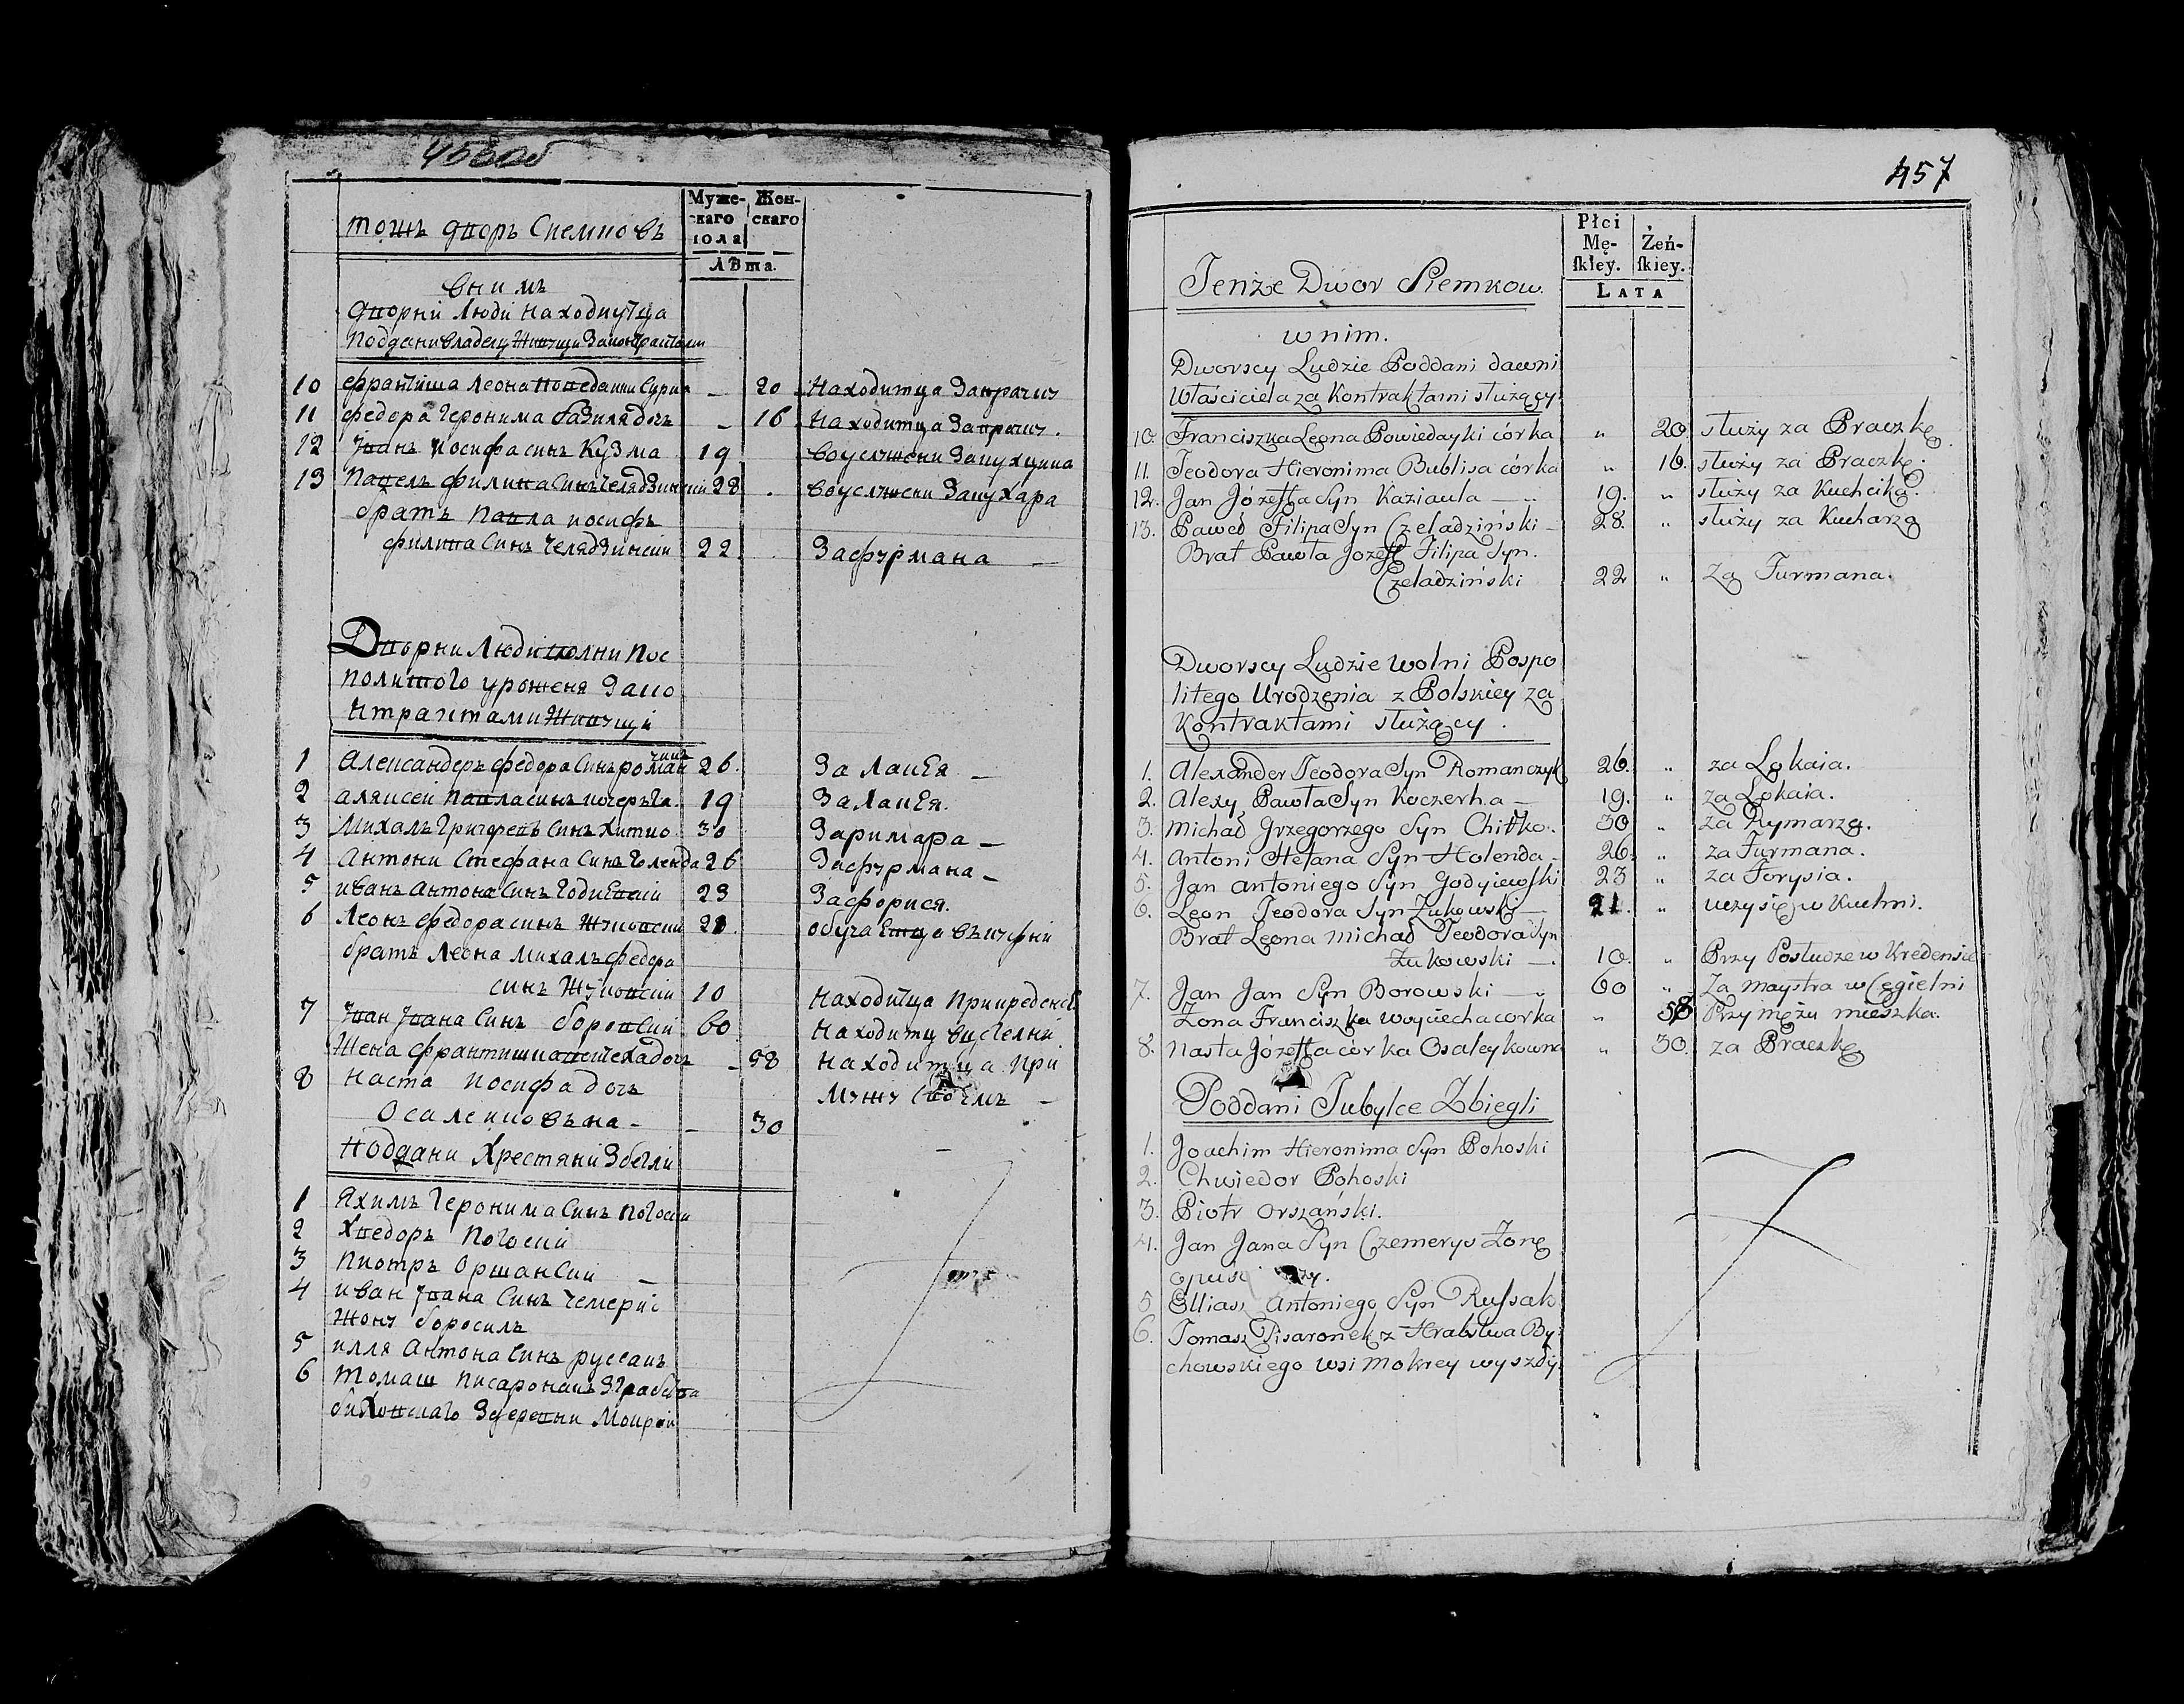 456об
Муже-
скаго
пола
Жен-
скаго
Лѣта.
тожъ дворъ Сиемковъ
внимъ
дворнии люди находиутца
Поддани владелца живущи Законтрактами
10 франтишка Леона Поведаики Сурка — 20 Находитца Запрачку
11 федора Геронима Базиля дочь — 16 Находитца Запрачку.
12 Иванъ Иосифа синъ Кузма 19 воуслужени Запухцика
13 Павелъ филипа Синъ Челядзинский 28 . воуслужени Запухара
братъ Павла иосифъ
филипа Синъ Челядзинский 22 Зафурмана —
Дворни Люди волни Пос
политого урожения Зако
нтрактами живущи
1 Александеръ федора Синъ романчикъ 26. За Лакея —
2 аляксей Павла синъ кочерга. 19 За Лакея.
3 Михалъ Григоревъ Синъ Хитко 30 Заримара —
4 Антони Стефана Синъ Голенда 26 Зафурмана —
5 иванъ Антона Синъ Годиевский 23 Зафорися.
6 Леонъ федора синъ Жуковский 21 обучаетца въкухни
братъ Леона Михалъ федора
синъ Жуковский 10 Находитца Прикреденсе
7 Иван Ивана Синъ боровский 60 Находитц вцегелни
Жена франтишка войтеха дочъ — 58 Находитца При
Мужу своемъ —
8 Наста Иосифа дочъ
Осалеиковъна — — 30
Поддани Хрестяни Збегли
1 Яхимъ Геронима Синъ Погоский
2 Хведоръ Погоский
3 Пиотръ Оршанский —
4 иван Ивана Синъ Чемерис
жону бросилъ
5 илля Антона Синъ руссакъ
6 Томаш Писаронакъ Зграбства
биховскаго Здеревни Мокрой
457
Płci
Mę-
ſkiey.
Żeń-
ſkiey.
LATA
Tenże Dwor Siemkow.
w nim.
Dworscy Ludzie Poddani dawni
Właściciela za Kontraktami służący.
10. Franciszka Leona Powiedayki córka " 20. służy za Praczkę
11. Teodora Hieronima Bublisa córka " 16. służy za Praczkę.
12. Jan Józeffa Syn Kaziaula — 19. " służy za Kuchcika.
13. Paweł Filipa Syn Czeladziński — 28. " służy za Kucharza
Brat Pawła Jozeff Filipa Syn.
Czeladziński 22 " Za Furmana.
Dworscy Ludzie wolni Pospo
litego Urodzenia z Polskiey za
Kontraktami służący.
1. Alexander Teodora Syn Romanczyk 26. " za Lokaia.
2. Alexy Pawła Syn Koczerha — 19. " za Lokaia.
3. Michał Grzegorzego Syn Chitko. 30 " za Rymarza.
4. Antoni Stefana Syn Holenda — 26. " za Furmana.
5. Jan Antoniego Syn Godyiewſki 23 " za Forysia.
6. Leon Teodora Syn Żukowski — 21. " uczy się w Kuchni.
Brat Leona Michał Teodora Syn
Żukowski — . 10. " Przy Posłudze w Kredensie
7. Jan Jan Syn Borowski — 60 " Za Maystra w Cegielni
Żona Franciszka Woyciecha corka " 58 Przy mężu mieszka.
8. Nasta Józeffa córka Osaleykowna " 30. za Praczkę
Poddani Tubylce Zbiegli
1. Joachim Hieronima Syn Pohoski
2. Chwiedor Pohoski
3. Piotr Orszański.
4. Jan Jana Syn Czemerys Żonę
5 Elliasz Antoniego Syn Ruſsak
6. Tomasz Pisaronek z Hrabstwa By
chowskiego wsi Mokrey wyszdy.